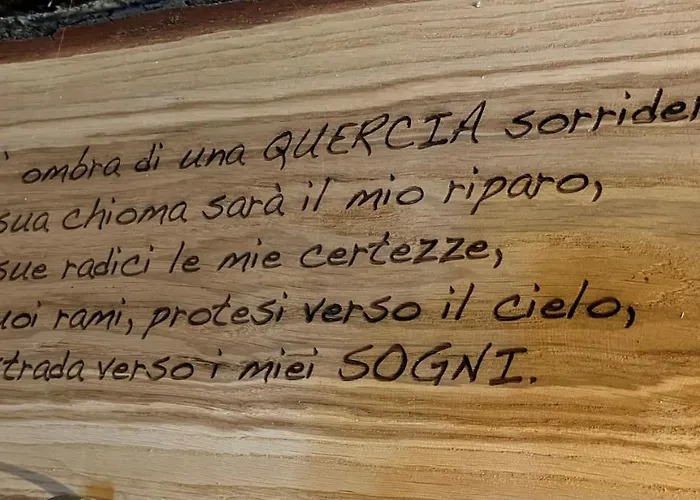 ' ombra di una QUERCIA sorrider
sua chioma sarà il mio riparo,
sue radici le mie certezze,
uoi rami, protesi verso il cielo,
trada verso i miei SOGNI.